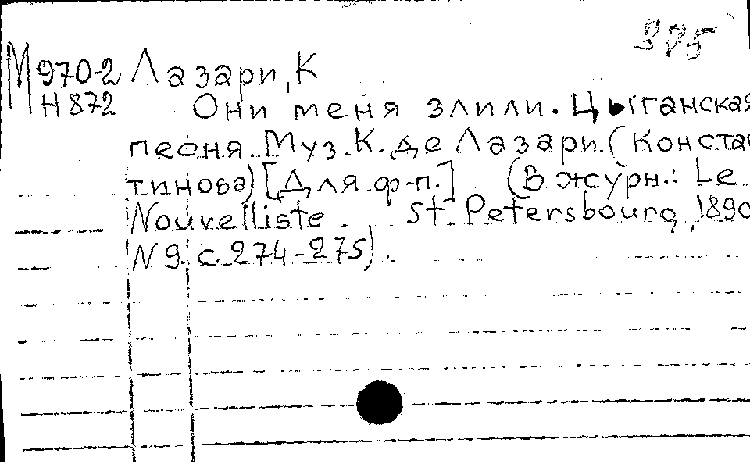 385
М 970-2 Лазари, К
Н 872 Они меня злили. Цыганская
песня. Муз. К. де Лазари. (Конста
тинова) [Для ф-п.] (В журн.: Le
Nouvelliste. St. Petersbourg, 1890
N 9. с. 274-275).